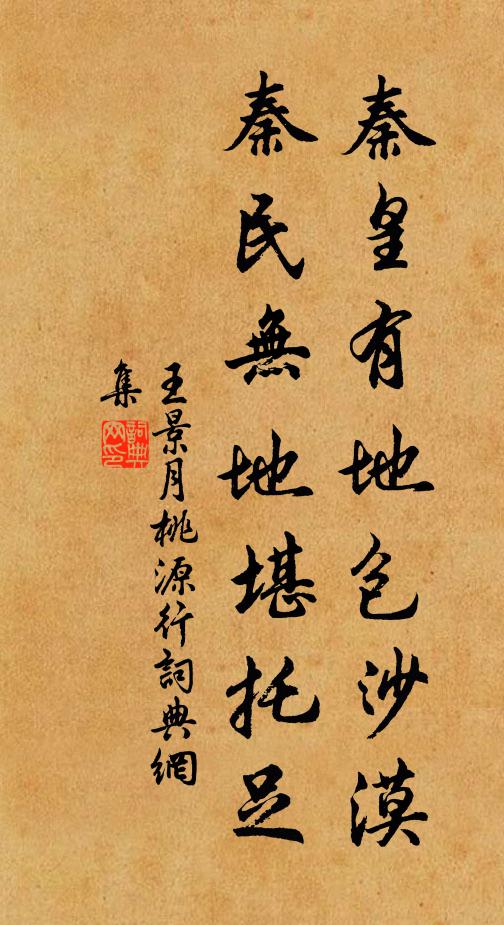 秦皇有地包沙漠
秦民無地堪托足
王景月桃源行詞典網
集
詞典
网印